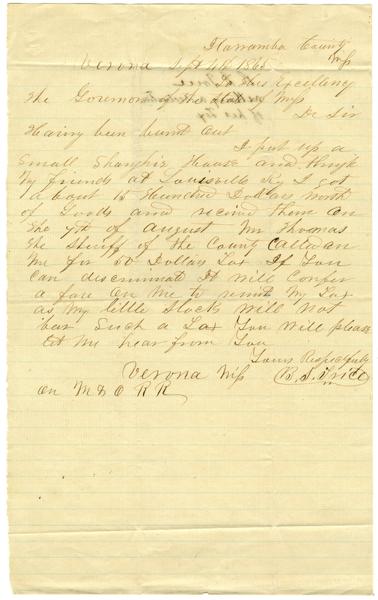 Itawamba County
Verona Sept 4th 1865 Miss
To His Excellency
The Governor of the State of Miss
Dr Sir
Having been burnt out
I put up a
Small Shanghie House and through
My friends at Louisville Ky I got
about 15 Hundred Dollars worth
of Goods and recived them on
the 7th of August Mr Thomas
the Sheriff of the County Called on
Me for 50 Dollars Tax If You
Can discriminate It will Confer
a favr on Me to remit My Tax
as My little Stock will Not
bar Such a Tax You will please
let Me hear from You
Yours Respectfully
Verona Miss B. S.
on M & O R R